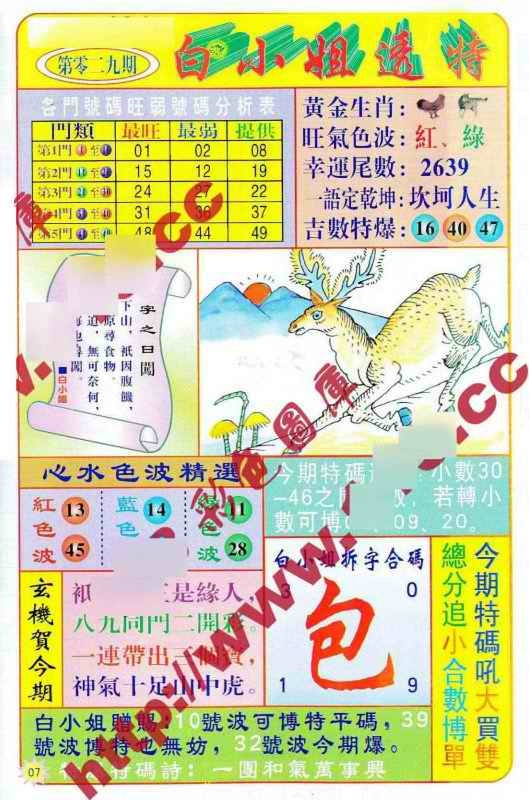 第零二九期
白小姐透特
各門號碼旺弱號碼分析表
門類 最旺 最弱 提供
第1門 至 01 02 08
第2門 至 15 12 19
第3門 至 24 27 22
第4門 至 31 36 37
第5門 至 48 44 49
黃金生肖:
旺氣色波:紅、綠
幸運尾數: 2639
一語定乾坤:坎坷人生
吉數特爆: 16 40 47
字之曰闖
下山,祇因腹饑,
原尋食物。
迫,無可奈何,
闖。
■白小姐
心水色波精選
紅色波 13 45
藍色 14
色波 11 28
今期特碼 小數30
-46之 若轉小
數可博 09、20。
白小姐拆字合碼
3 0
包
1 9
今期特碼吼大買雙
總分追小合數博單
玄機賀今期
是緣人,
八九同門二開彩。
一連帶出三個寶,
神氣十足山中虎。
白小姐贈賜:10號波可博特平碼,39
號波博特也無妨,32號波今期爆。
07
特碼詩: 一團和氣萬事興
彩色圖庫
http://www.
.cc